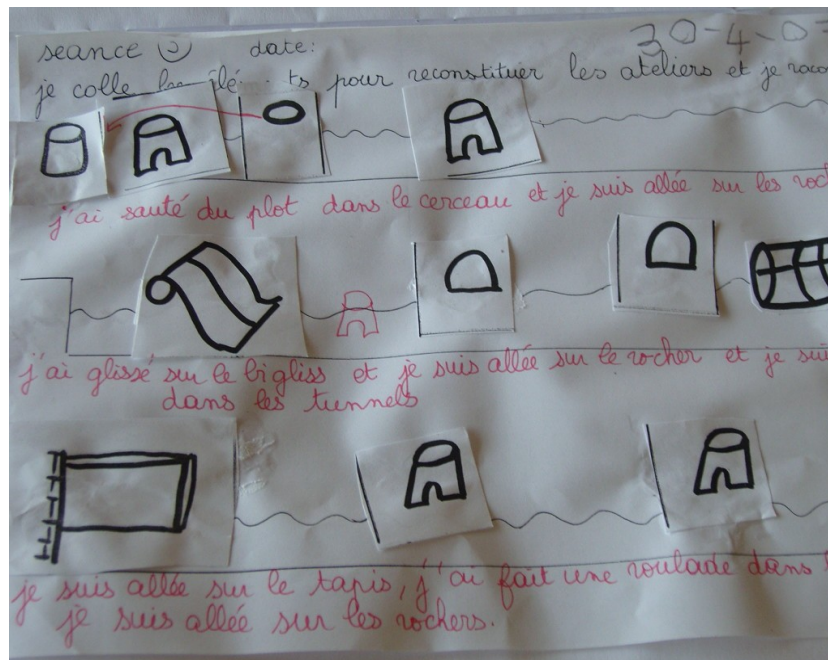 seance 3 date: 30-4-0
je colle les élé ts pour reconstituer les ateliers et je
j'ai sauté du plot dans le cerceau et je suis allée sur les
j'ai glissé sur le bigliss et je suis allée sur le rocher et je
dans les tunnels
je suis allée sur le tapis, j'ai fait une roulade dans
je suis allée sur les rochers.